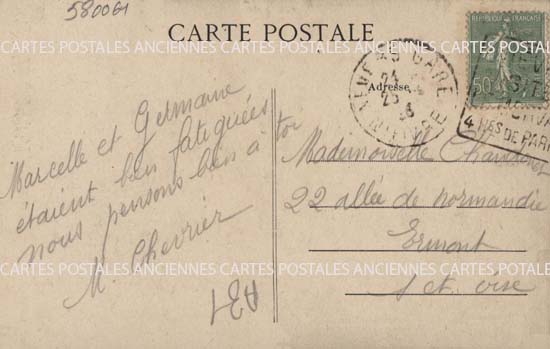 580061
CARTE POSTALE
RÉPUBLIQUE FRANÇAISE
50
GARE
4 HES DE PARIS
CARTES POSTALES ANCIENNES CARTES POSTALES ANCIENNES CARTES POSTALES ANCIENNES
Adresse
Marcelle et Germaine
étaient bien fatiguées
nous pensons bien à toi
M. Chevrier
A31
Mademoiselle
22 allée de normandie
Ermont
S et oise
CARTES POSTALES ANCIENNES CARTES POSTALES ANCIENNES CARTES POSTALES ANCIENNES